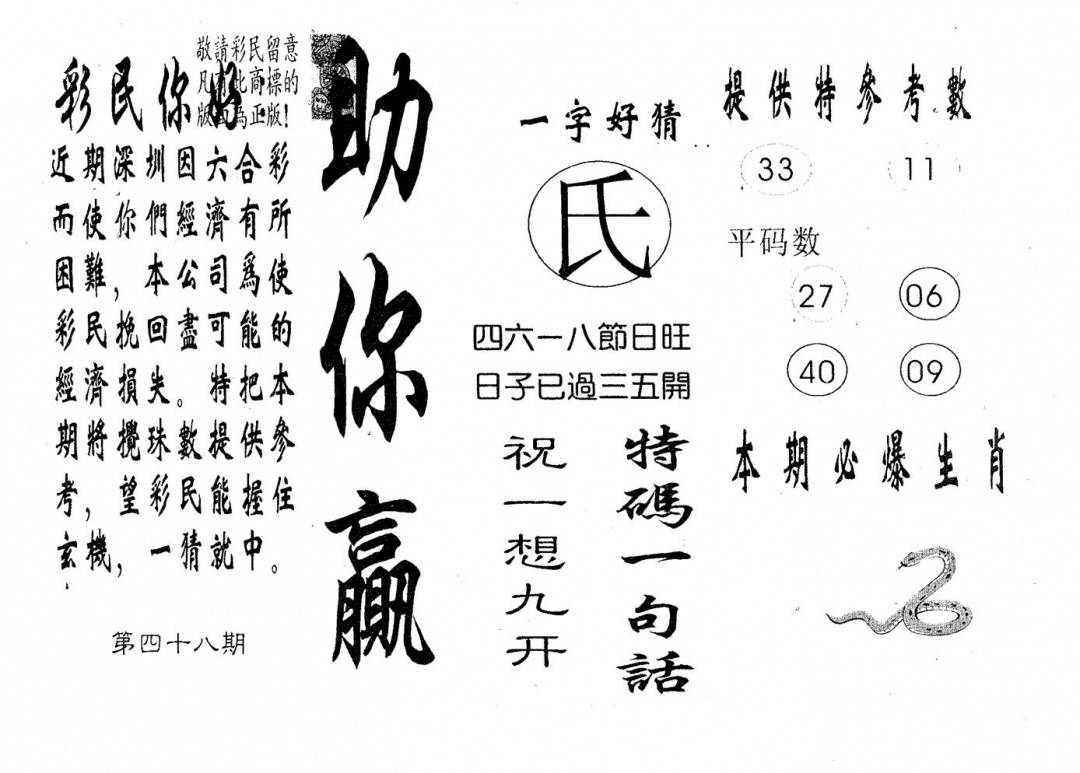 敬請彩民留意
凡有此商標的
版面為正版!
彩民你好
近期深圳因六合彩
而使你們經濟有所
困難，本公司爲使
彩民挽回盡可能的
經濟損失。特把本
期將攪珠數提供參
考，望彩民能握住
玄機，一猜就中。
第四十八期
助你贏
一字好猜
氏
四六一八節日旺
日子已過三五開
特碼一句話
祝一想九开
提供特參考數
33 11
平码数
27 06
40 09
本期必爆生肖